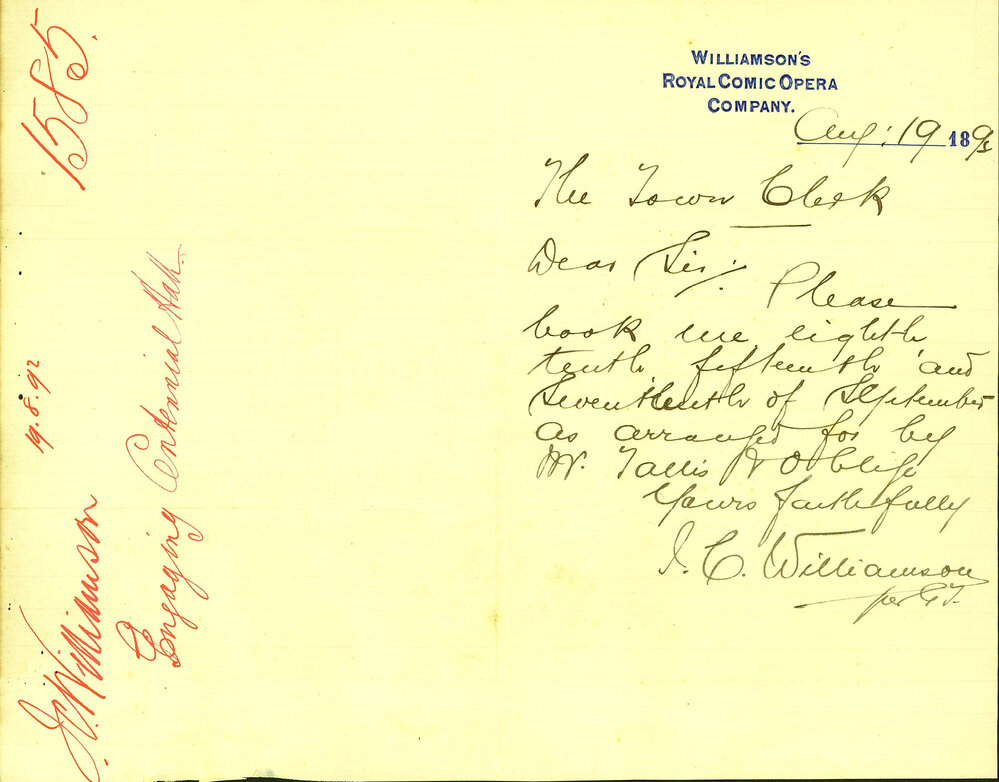 1585.
J.C. Williamson
19.8.92
Engaging Centennial Hall.
WILLIAMSON'S
ROYAL COMIC OPERA
COMPANY.
Aug: 19 1892
The Town Clerk
Dear Sir;
Please
book me eighth
tenth fifteenth and
Seventeenth of September
as arranged for by
Mr. Tallis & Oblige
Yours faithfully
J. C. Williamson
per G.T.